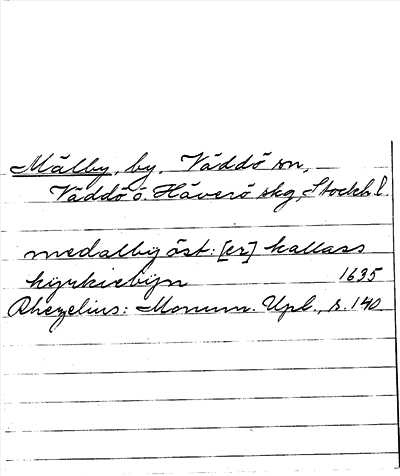 Mälby, by, Väddö sn,
Väddö o. Häverö skg, Stockh. l.
medalbyöst: [er] kallass
kyrkiebyn 1635
Rhezelius: Monum. Upl., s. 140